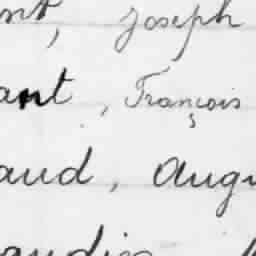 nt, Joseph
ant, François
aud, Augu
audies